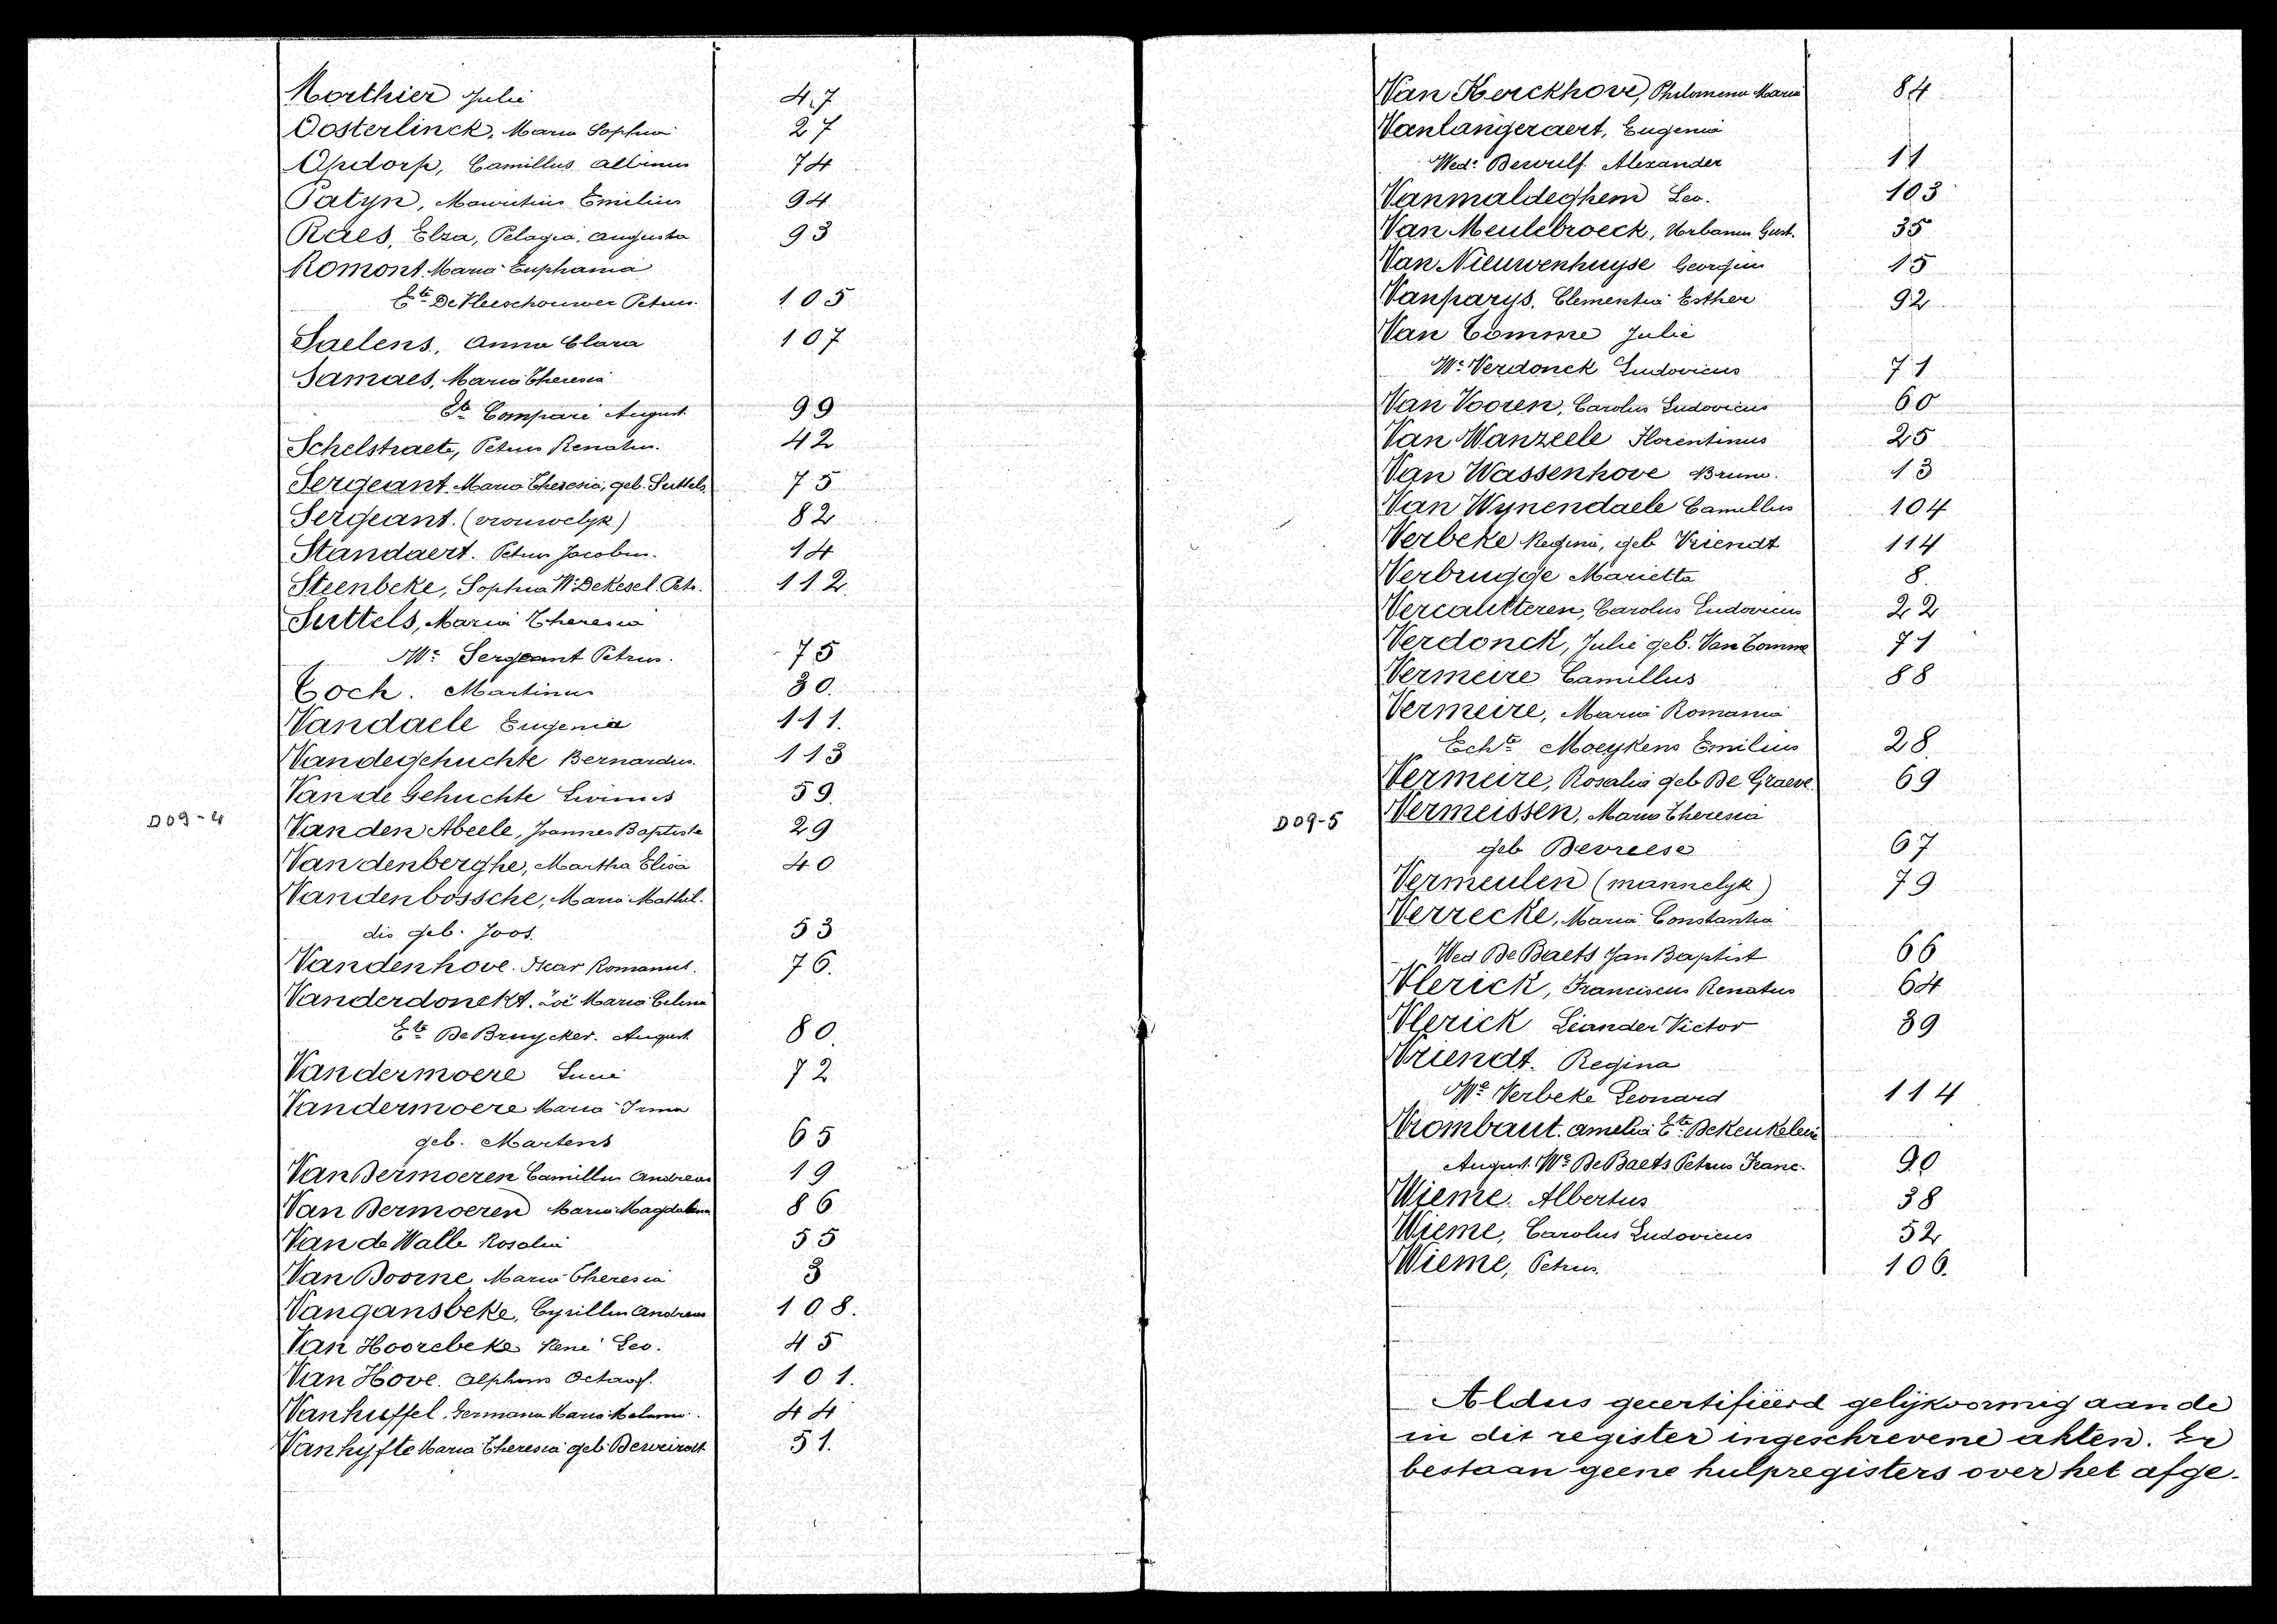 Morthier Julie 47
Oosterlinck, Maria Sophia 27
Opdorp, Camillus Albinus 74
Patyn, Mauritius Emilius 94
Raes, Elza, Pelagia, Augusta 93
Romont Maria Euphania
Ete De Vleeschouwer Petrus. 105
Saelens, Anna Clara 107
Samaes, Maria Theresia
Ete Comparé August. 99
Schelstraete, Petrus Renatus. 42
Sergeant Maria Theresia, geb. Suttels. 75
Sergeant. (vrouwelyk) 82
Standaert. Petrus Jacobus. 14
Steenbeke, Sophia We DeKesel. Petr. 112
Suttels, Maria Theresia
We Sergeant Petrus. 75
Toch. Martinus 30.
Vandaele Eugenia 111.
Vandegehuchte Bernardus. 113
Van de Gehuchte Livinus 59.
D09-4
Van den Abeele, Joannes Baptista 29
Van denberghe, Martha Elisa 40
Vandenbossche, Maria Mathil.
dis geb. Joos. 53
Vandenhove. Oscar Romanus. 76.
Vanderdonckt. Zoë Maria Celina
Ete De Bruycker. August. 80.
Vandermoere Lucie 72
Vandermoere Maria Irma
geb. Martens 65
Van Dermoeren Camillus Andreas 19
Van Dermoeren Maria Magdalena 86
Van de Walle Rosalia 55
Van Doorne Maria Theresia 3
Vangansbeke, Cyrillus Andreas 108.
Van Hoorebeke René Leo. 45
Van Hove. Alphons Octaaf. 101.
Vanhuffel. Germana Maria 44
Vanhyfte Maria Theresia geb. 51.
Van Kerckhove, Philomena Maria 84
Vanlangeraert, Eugenia
Wede Dewulf. Alexander 11
Vanmaldeghem Leo. 103
Van Meulebroeck, Urbanus Gust. 35
Van Nieuwenhuyse Georgius 15
Vanparys. Clementia Esther 92
Van Tomme Julie
We Verdonck Ludovicus 71
Van Vooren, Carolus Ludovicus 60
Van Wanzeele Florentinus 25
Van Wassenhove Bruno. 13
Van Wynendaele Camillus 104
Verbeke Regina, geb Vriendt 114
Verbrugge Marietta 8.
Vercautteren, Carolus Ludovicus 22
Verdonck, Julie geb. Van Tomme 71
Vermeire Camillus 88
Vermeire, Maria Romania
Echte Moeykens Emilius 28
Vermeire, Rosalia geb De Graeve 69
D09-5
Vermeissen, Maria Theresia
geb Devreese 67
Vermeulen (mannelyk) 79
Verrecke, Maria Constantia
Wed De Baets Jan Baptist 66
Vlerick, Franciscus Renatus 64
Vlerick Léander Victor 39
Vriendt. Regina
We Verbeke Leonard 114
Vrombaut. Amelia Ete DeKeukeleire
August. We De Baets Petrus Franc. 90
Wieme. Albertus 38
Wieme, Carolus Ludovicus 52
Wieme, Petrus. 106.
Aldus gecertifiëerd gelijkvormig aan de
in dit register ingeschrevene akten. Er
bestaan geene hulpregisters over het afge-